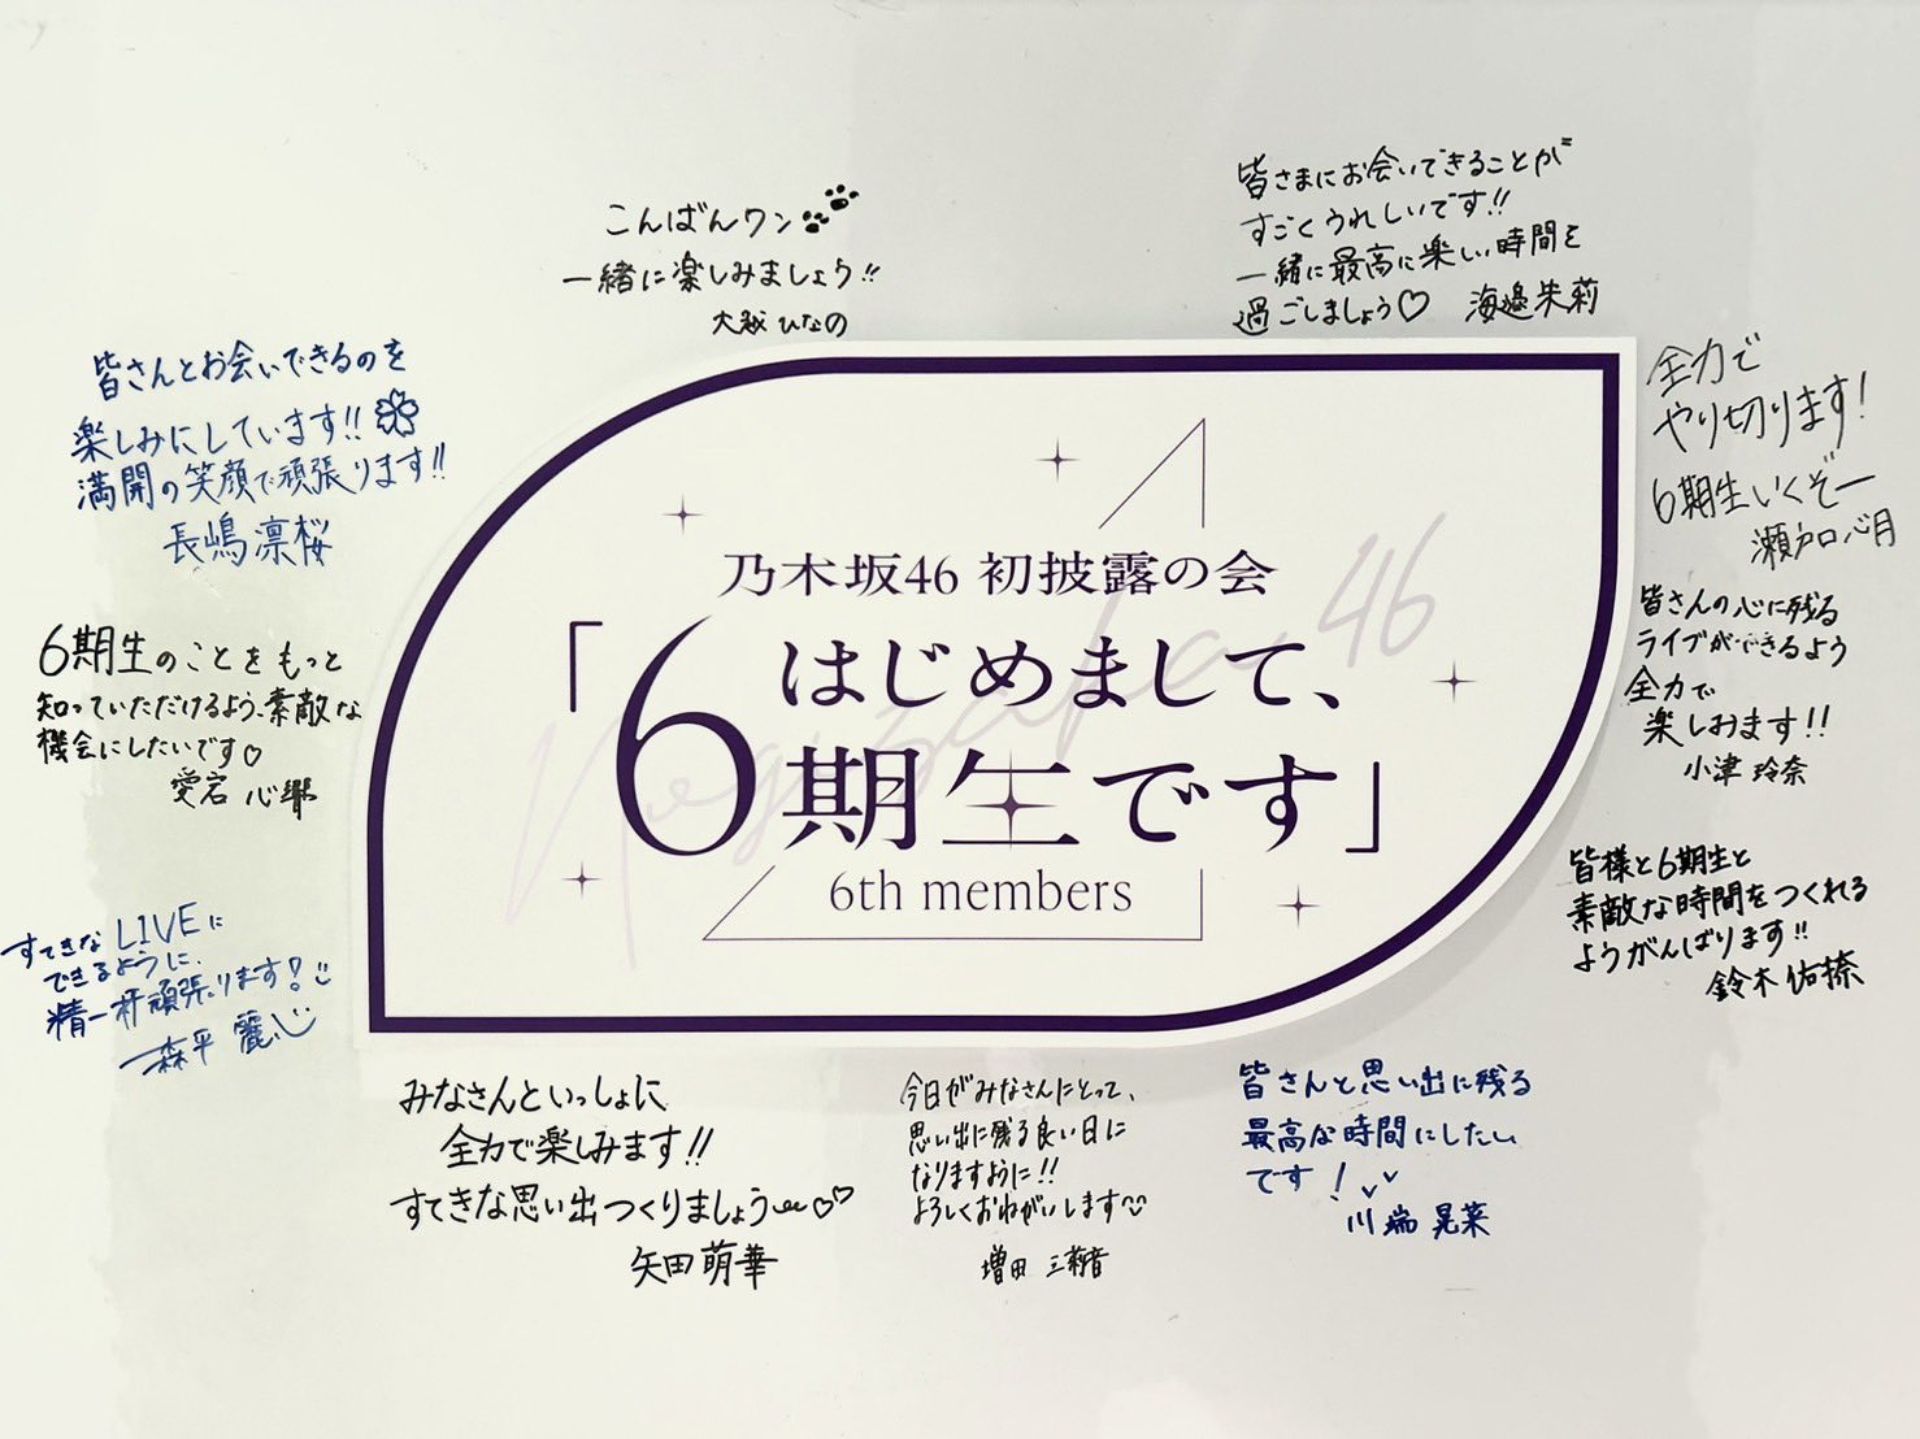 こんばんワン
一緒に楽しみましょう!!
大越ひなの
皆さまにお会いできることが
すごくうれしいです!!
一緒に最高に楽しい時間を
過ごしましょう♡ 海邉朱莉
皆さんとお会いできるのを
楽しみにしています!!
満開の笑顔で頑張ります!!
長嶋凛桜
全力で
やり切ります!
6期生いくぞー
瀬戸口心月
6期生のことをもっと
知っていただけるよう、素敵な
機会にしたいです♡
愛宕 心響
皆さんの心に残る
ライブができるよう
全力で
楽しみます!!
小津 玲奈
乃木坂46 初披露の会
「はじめまして、
6期生です」
6th members
Nogizaka 46
すてきなLIVEに
できるように、
精一杯頑張ります!
森平 麗心
皆様と6期生と
素敵な時間をつくれる
ようがんばります!!
鈴木佑捺
みなさんといっしょに
全力で楽しみます!!
すてきな思い出つくりましょう♡♡
矢田萌華
今日がみなさんにとって、
思い出に残る良い日に
なりますように!!
よろしくおねがいします
増田 三莉音
皆さんと思い出に残る
最高な時間にしたい
です!
川端 晃菜